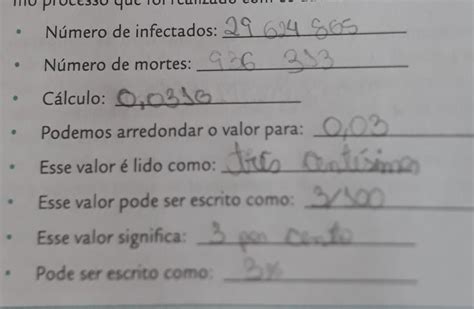 mo processo que foi realizado com os
• Número de infectados: 29 624 865
• Número de mortes: 936 313
• Cálculo: 0,0316
• Podemos arredondar o valor para: 0,03
• Esse valor é lido como: três centésimos
• Esse valor pode ser escrito como: 3/100
• Esse valor significa: 3 por cento
• Pode ser escrito como: 3%